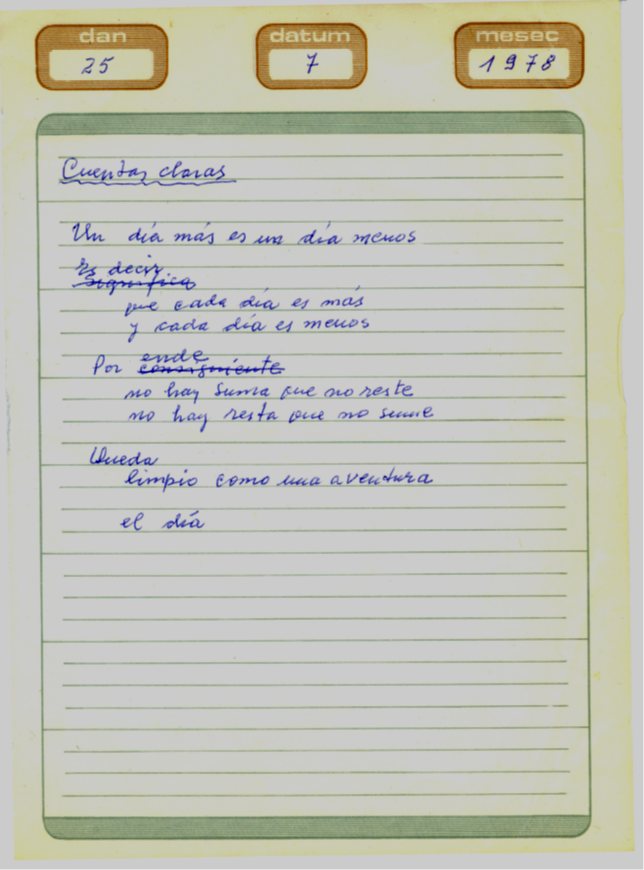 dan datum mesec
25 7 1978
Cuentas claras
Un día más es un día menos
Es decir
Significa
que cada día es más
y cada día es menos
ende
Por consiguiente
no hay suma que no reste
no hay resta que no sume
Queda
limpio como una aventura
el día